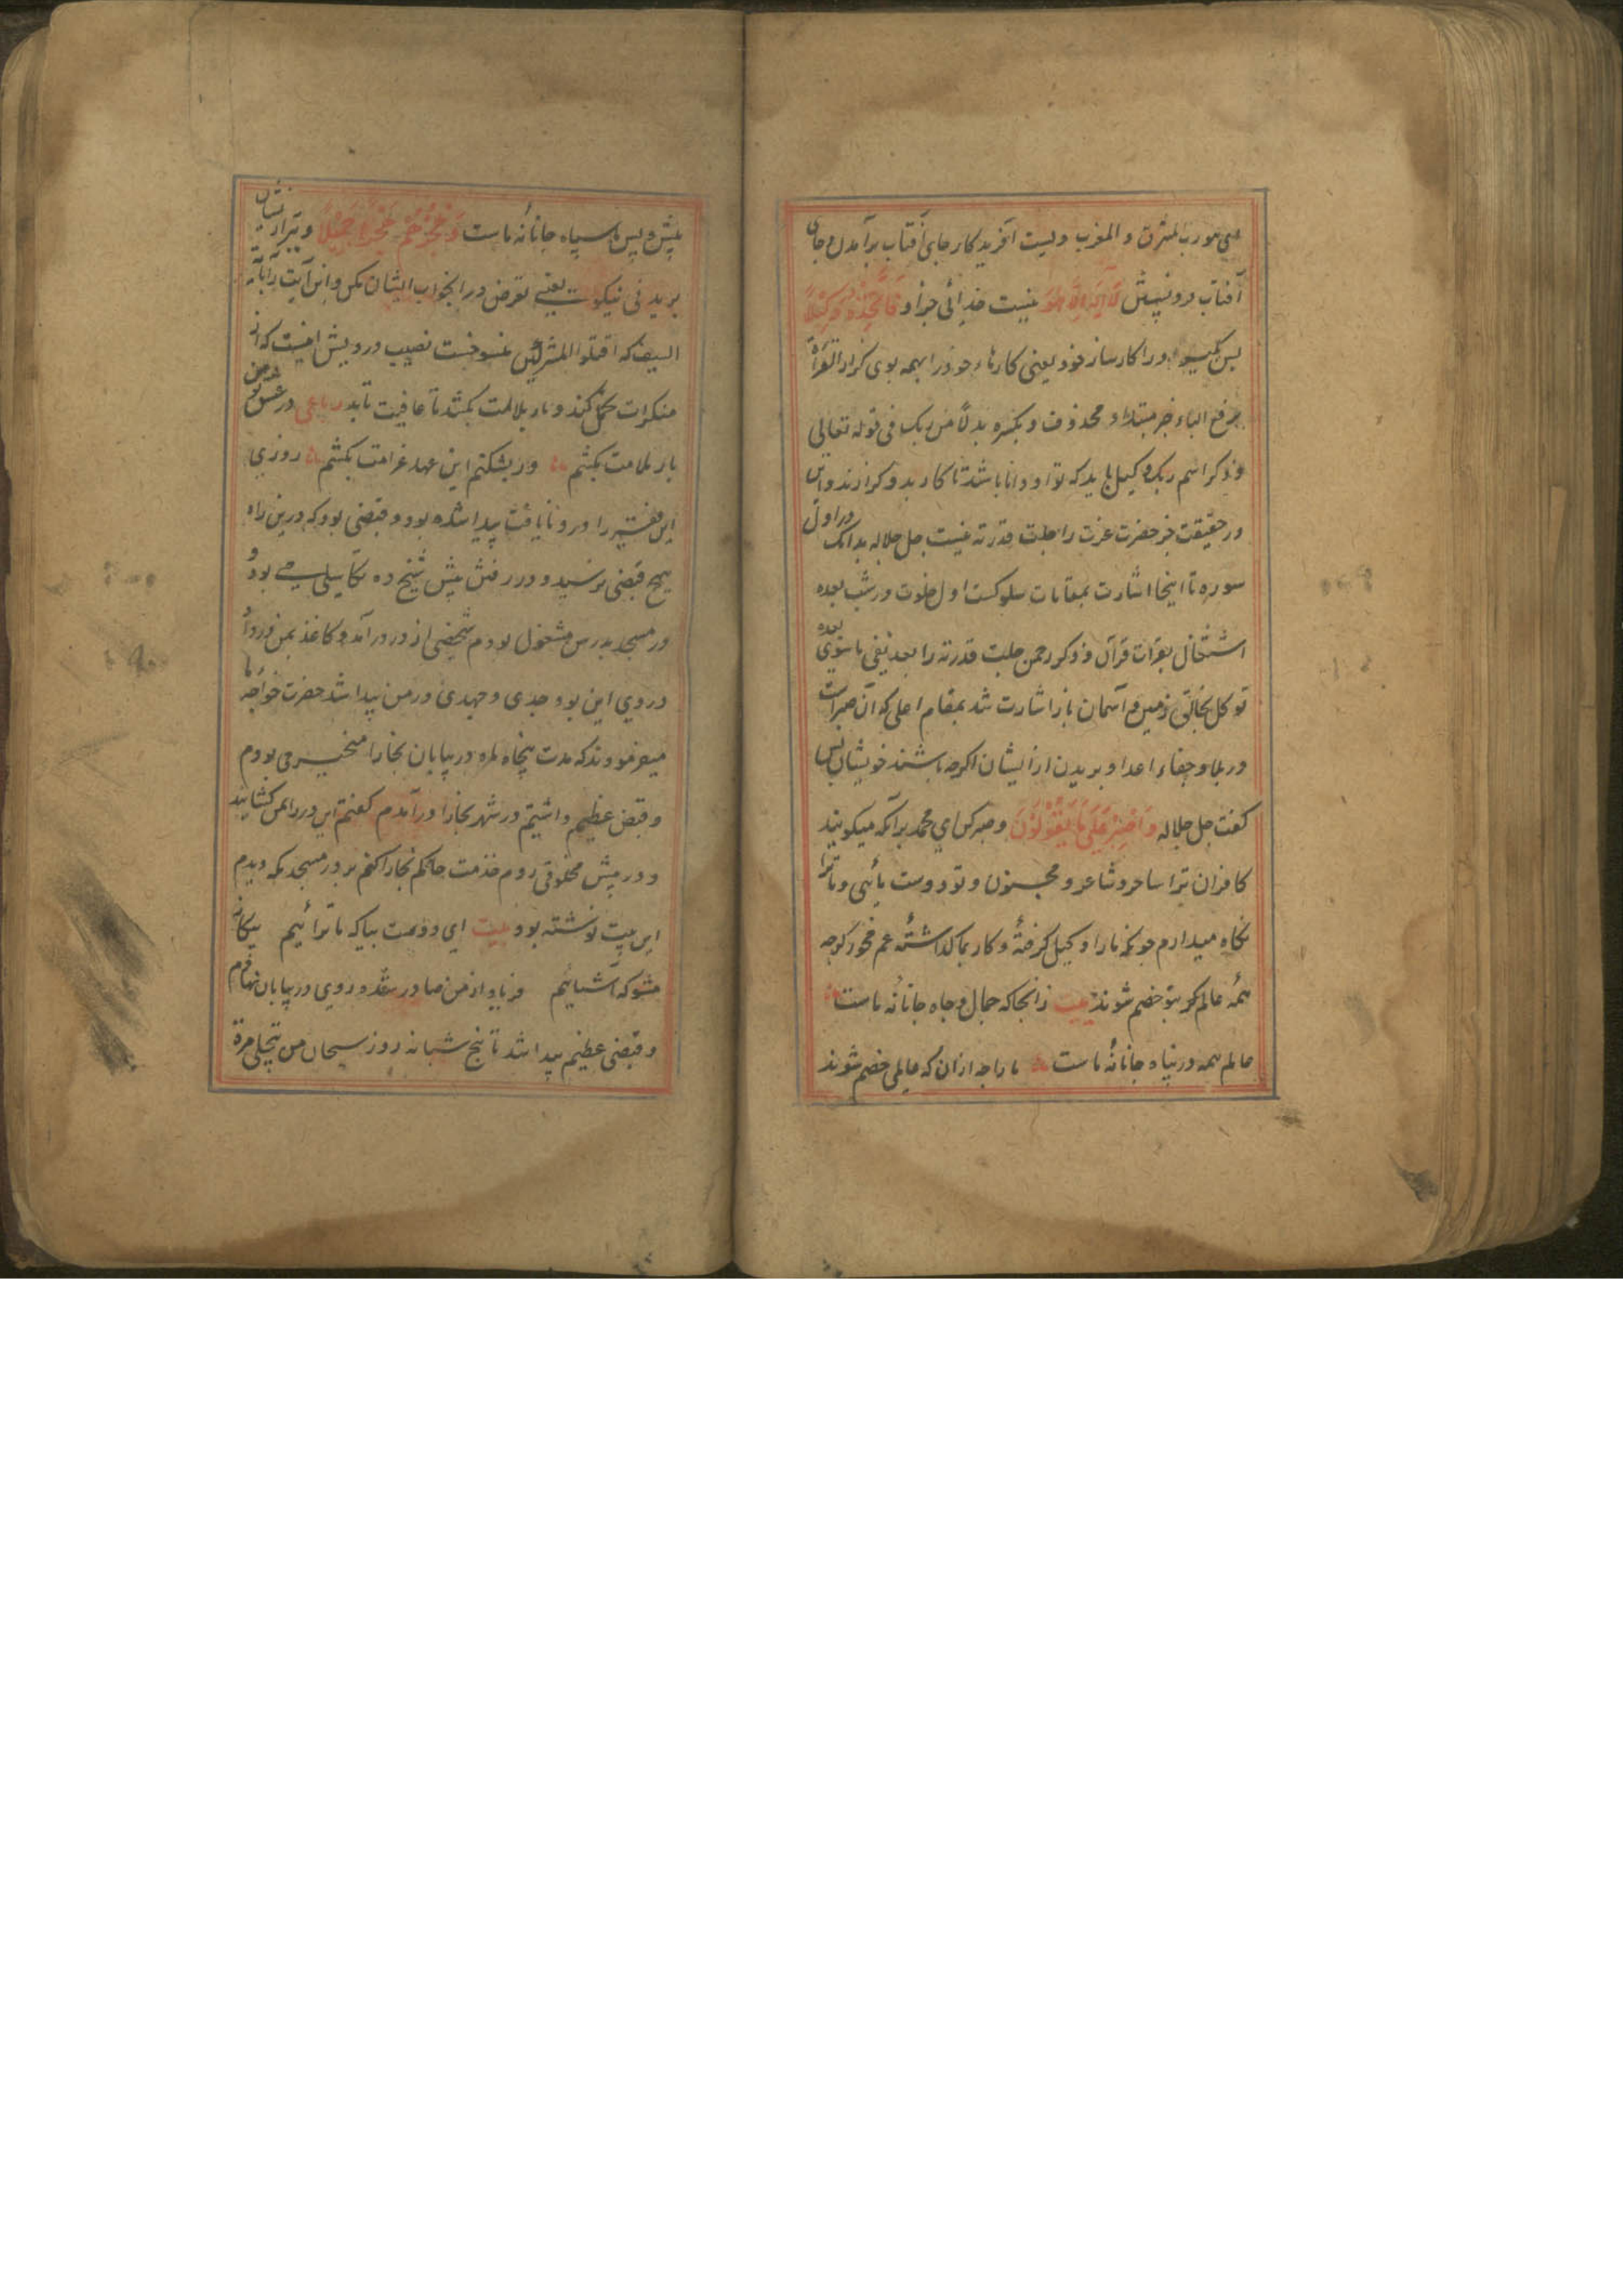 هی هو رب المشرق و المغرب ویست آفریدکار جای آفتاب برآمدن و جای
آفتاب فرو نشستن لَا اِلٰهَ اِلَّا هُوَ نیست خدائی جز او فَاتَّخِذْهُ وَكِیْلًا
پس بگیر او را کارساز خود یعنی کارهاء خود را بهمه بوی گزار القراءة
برفع الباء خبر مبتداء محذوف و بکسره بدلاً من ربک فی قوله تعالی
و ذکر اسم ربک وکیل باید که توانا و دانا باشد تا کار بدو گزارند و این
در حقیقت جز حضرت عزت را جلت قدرته نیست جل جلاله بدانک در اول
سوره تا اینجا اشارت بمقامات سلوکست اول خلوت در شب بعده
اشتغال بقرآت قرآن و ذکر رحمن جلت قدرته را بعد نفی ما سوی بعده
توکل بخالق زمین و آسمان باز اشارت شد بمقام اعلی که آن صبر است
در بلا و جفاء اعدا و بریدن از ایشان اگرچه باشند خویشان پس
گفت جل جلاله وَاصْبِرْ عَلٰی مَا یَقُوْلُوْنَ و صبر کن ای محمد برآنکه میگویند
کافران ترا ساحر و شاعر و مجنون و تو دوست مائی و ما ترا
نگاه میدارم چونکه ما را وکیل گرفتهٔ و کار بما گذاشتهٔ غم مخور گرچه
همهٔ عالم گر بتو خصم شوند بیت زانجا که جمال و جاه جانانهٔ ماست
عالم همه در پناه جانانهٔ ماست ما را چه ازان که عالمی خصم شوند
پیش و پس ما سپاه جانانهٔ ماست وَاهْجُرْهُمْ هَجْرًا جَمِیْلًا و ببر از ایشان
بریدنی نیکوست یعنی تعرض در انجواب ایشان مکن و این آیت بآیة
السیف که اقتلوا المشرکین منسوخست نصیب درویش اینست که از
منکرات تحمل کند و بار ملامت بکشد تا عافیت تابد رباعی در عشق تو من
بار ملامت بکشم ور بشکنم این عهد غرامت بکشم روزی
این فقیر را درد نایافت پیدا شده بود و قبضی بود که درین راه
هیچ قبضی نرسید و در رفتن پیش شیخ ده تکاسیلی می بود
در مسجد بدرس مشغول بودم شخصی از در درآمد و کاغذ بمن داد
در وی این بود جدی و جهدی در من پیدا شد حضرت خواجه ما
میفرمودند که مدت پنچاه ماه در بیابان بخارا متحیر می بودم
و قبض عظیم داشتم در شهر بخارا درآمدم گفتم این در را بمن کشایند
و در پیش مخلوقی روم خدمت حاکم بخارا کنم بر در مسجد مکه دیدم
این بیت نوشته بود بیت ای دوست بیا که ما ترائیم بیگانه
مشو که آشنائیم فریاد از من صادر شد و روی در بیابان نهادم
و قبضی عظیم پیدا شد تا پنج شبانه روز سبحان من یتجلی مرة